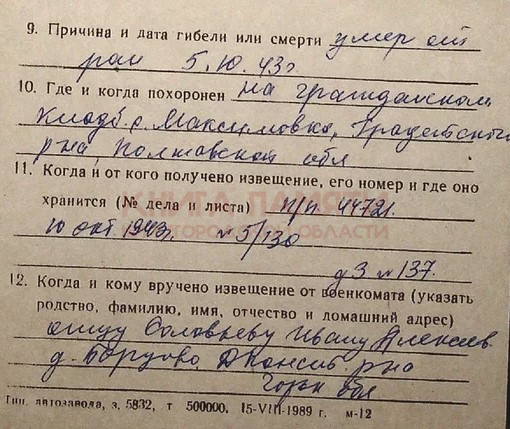 9. Причина и дата гибели или смерти умер от
ран 5.10.43г.
10. Где и когда похоронен на гражданском
кладб. с. Максимовка, Градижского
р-на Полтавской обл
11. Когда и от кого получено извещение, его номер и где оно
хранится (№ дела и листа) п/п 44721.
10 окт. 1943г. № 5/130
д 3 № 137.
КНИГА ПАМЯТИ
НИЖЕГОРОДСКОЙ ОБЛАСТИ
12. Когда и кому вручено извещение от военкомата (указать
родство, фамилию, имя, отчество и домашний адрес)
отцу Соловьеву Ивану Алексеев.
д. Борцово, Д.Констан. р-на
Горьк обл
Тип. автозавода, з. 5832, т 500000, 15-VIII-1989 г. м-12